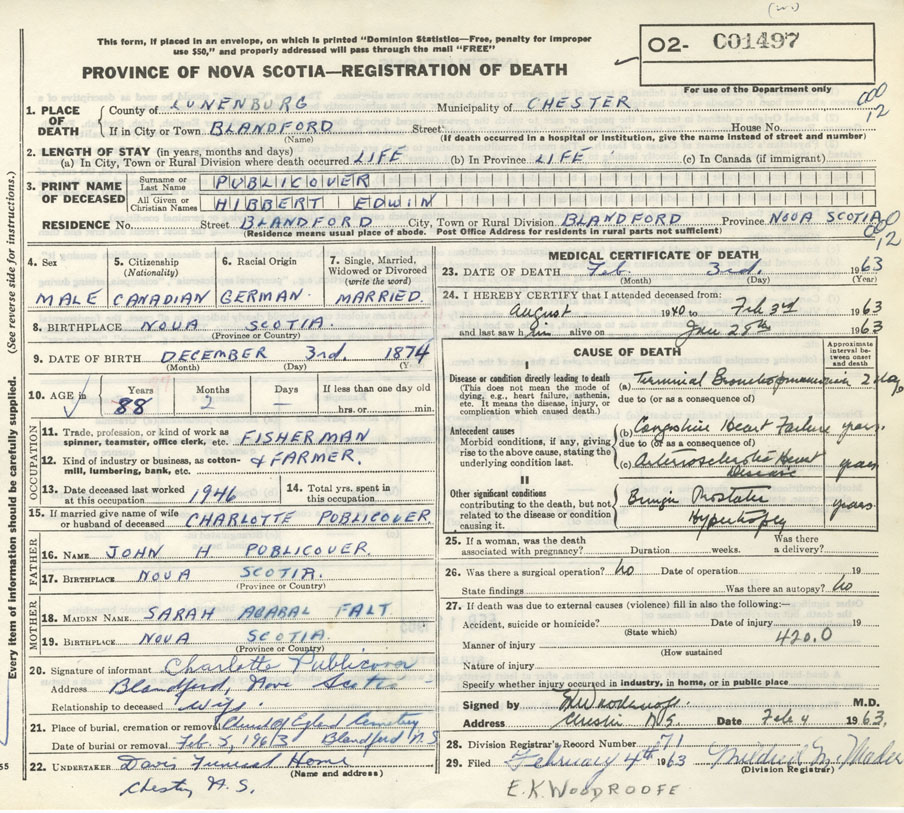 This form, if placed in an envelope, on which is printed "Dominion Statistics—Free, penalty for improper
use $50," and properly addressed will pass through the mail "FREE"
PROVINCE OF NOVA SCOTIA—REGISTRATION OF DEATH
02- C01497
For use of the Department only
000
12
1. PLACE OF DEATH County of LUNENBURG Municipality of CHESTER
If in City or Town BLANDFORD Street House No.
(Name) (If death occurred in a hospital or institution, give the name instead of street and number)
2. LENGTH OF STAY (in years, months and days)
(a) In City, Town or Rural Division where death occurred LIFE (b) In Province LIFE (c) In Canada (if immigrant)
3. PRINT NAME OF DECEASED Surname or Last Name PUBLICOVER
All Given or Christian Names HIBBERT EDWIN
RESIDENCE No. Street BLANDFORD City, Town or Rural Division BLANDFORD Province NOVA SCOTIA
(Residence means usual place of abode. Post Office Address for residents in rural parts not sufficient)
000
12
Every item of information should be carefully supplied. (See reverse side for instructions.)
4. Sex 5. Citizenship (Nationality) 6. Racial Origin 7. Single, Married, Widowed or Divorced (write the word)
MALE CANADIAN GERMAN. MARRIED
8. BIRTHPLACE NOVA SCOTIA.
(Province or Country)
9. DATE OF BIRTH DECEMBER 3rd 1874
(Month) (Day)
10. AGE in Years Months Days If less than one day old
88 2 – hrs. or min.
OCCUPATION
11. Trade, profession, or kind of work as spinner, teamster, office clerk, etc. FISHERMAN
12. Kind of industry or business, as cotton-mill, lumbering, bank, etc. & FARMER.
13. Date deceased last worked at this occupation 1946 14. Total yrs. spent in this occupation
15. If married give name of wife or husband of deceased CHARLOTTE PUBLICOVER
FATHER
16. NAME JOHN H PUBLICOVER.
17. BIRTHPLACE NOVA SCOTIA.
(Province or Country)
MOTHER
18. MAIDEN NAME SARAH FALT
19. BIRTHPLACE NOVA SCOTIA
(Province or Country)
20. Signature of informant Charlotte Publicover
Address Blandford, Nova Scotia
Relationship to deceased Wife.
21. Place of burial, cremation or removal Church of England Cemetery
Date of burial or removal Feb. 5, 1963 Blandford N.S
22. UNDERTAKER Davis Funeral Home
(Name and address)
Chester, N.S.
55
MEDICAL CERTIFICATE OF DEATH
23. DATE OF DEATH Feb. 3rd. 1963
(Month) (Day) (Year)
24. I HEREBY CERTIFY that I attended deceased from:
August 1940 to Feb 3rd 1963
and last saw him alive on Jan 28th 1963
CAUSE OF DEATH
Approximate interval between onset and death
I
Disease or condition directly leading to death
(This does not mean the mode of dying, e.g., heart failure, asthenia, etc. It means the disease, injury, or complication which caused death.)
(a) Terminal Bronchopneumonia 2 days
due to (or as a consequence of)
Antecedent causes
Morbid conditions, if any, giving rise to the above cause, stating the underlying condition last.
(b) Congestive Heart Failure years.
due to (or as a consequence of)
(c) Arteriosclerotic Heart Disease years
II
Other significant conditions
contributing to the death, but not related to the disease or condition causing it.
Benign Prostatic Hypertrophy years
25. If a woman, was the death associated with pregnancy? Duration weeks. Was there a delivery?
26. Was there a surgical operation? No Date of operation 19
State findings Was there an autopsy? No
27. If death was due to external causes (violence) fill in also the following:—
Accident, suicide or homicide? Date of injury 19
(State which)
Manner of injury 420.0
(How sustained
Nature of injury
Specify whether injury occurred in industry, in home, or in public place
Signed by EKWoodroofe M.D.
Address Chester N.S Date Feb 4 1963.
28. Division Registrar's Record Number 71
29. Filed February 4th 1963 Mildred M. Mader
(Division Registrar)
E.K. WOODROOFE